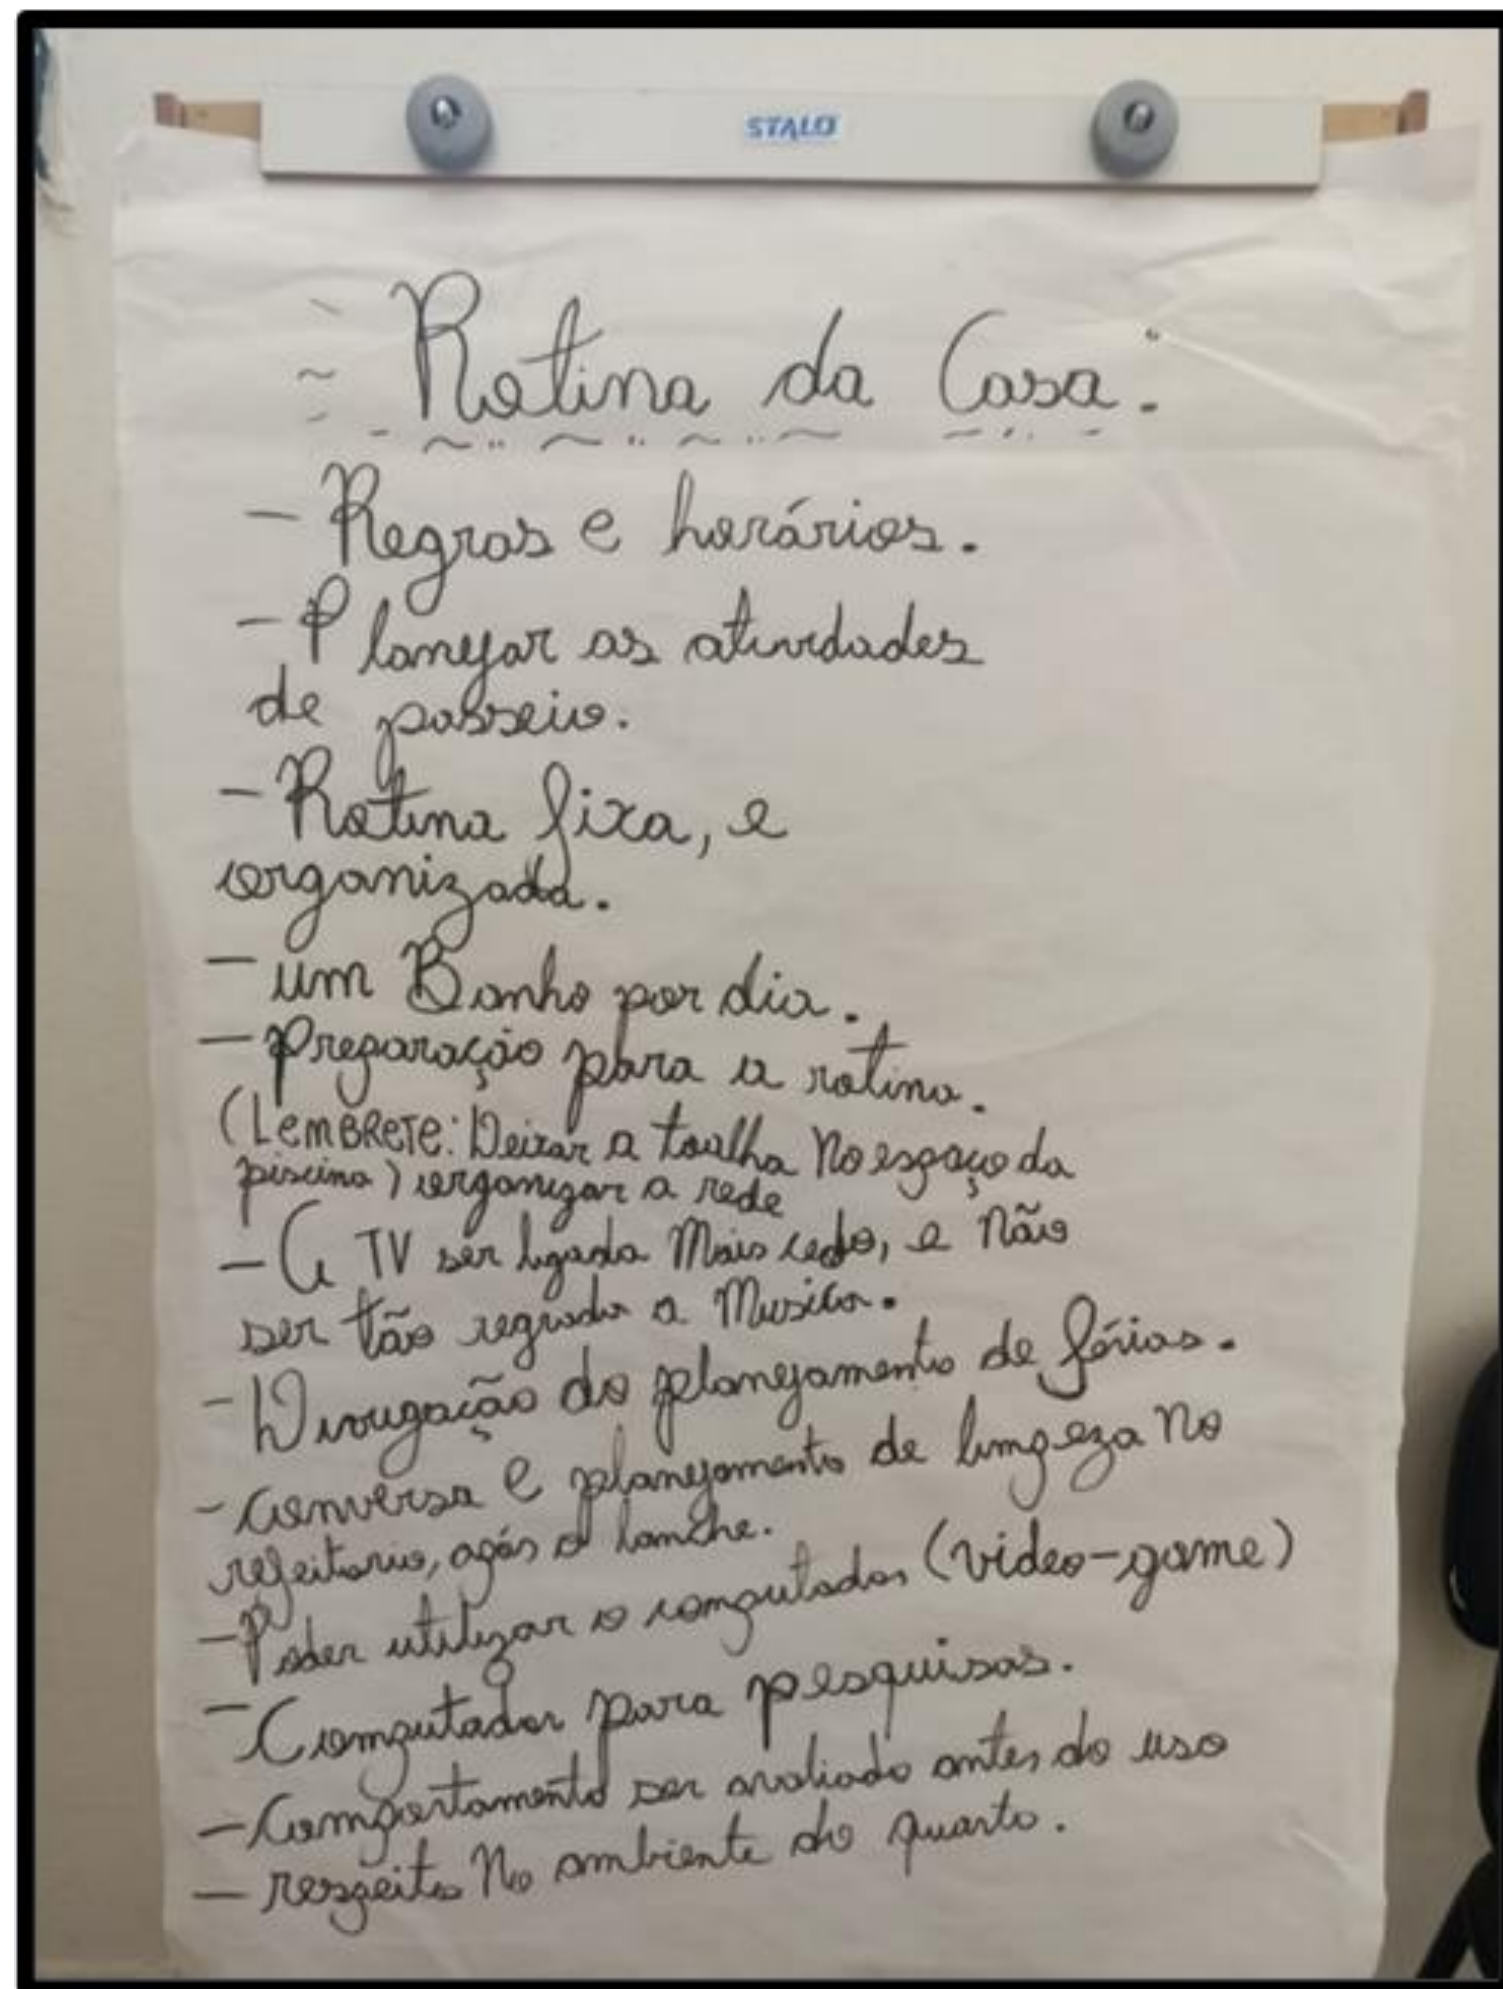 STALO
Rotina da Casa.
- Regras e horários.
- Planejar as atividades
de passeio.
- Rotina fixa, e
organizada.
- um Banho por dia.
- Preparação para a rotina.
(LemBRETe: Deixar a toalha No espaço da
piscina) organizar a rede
- A TV ser ligada Mais cedo, e Não
ser tão regrada a Musica.
- Divugação do planejamento de férias.
- Conversa e planejamento de limpeza No
refeitorio, após o lanche.
- Poder utilizar o computador (video-game)
- Computador para pesquisas.
- Comportamento ser avaliado antes do uso
- respeito No ambiente do quarto.